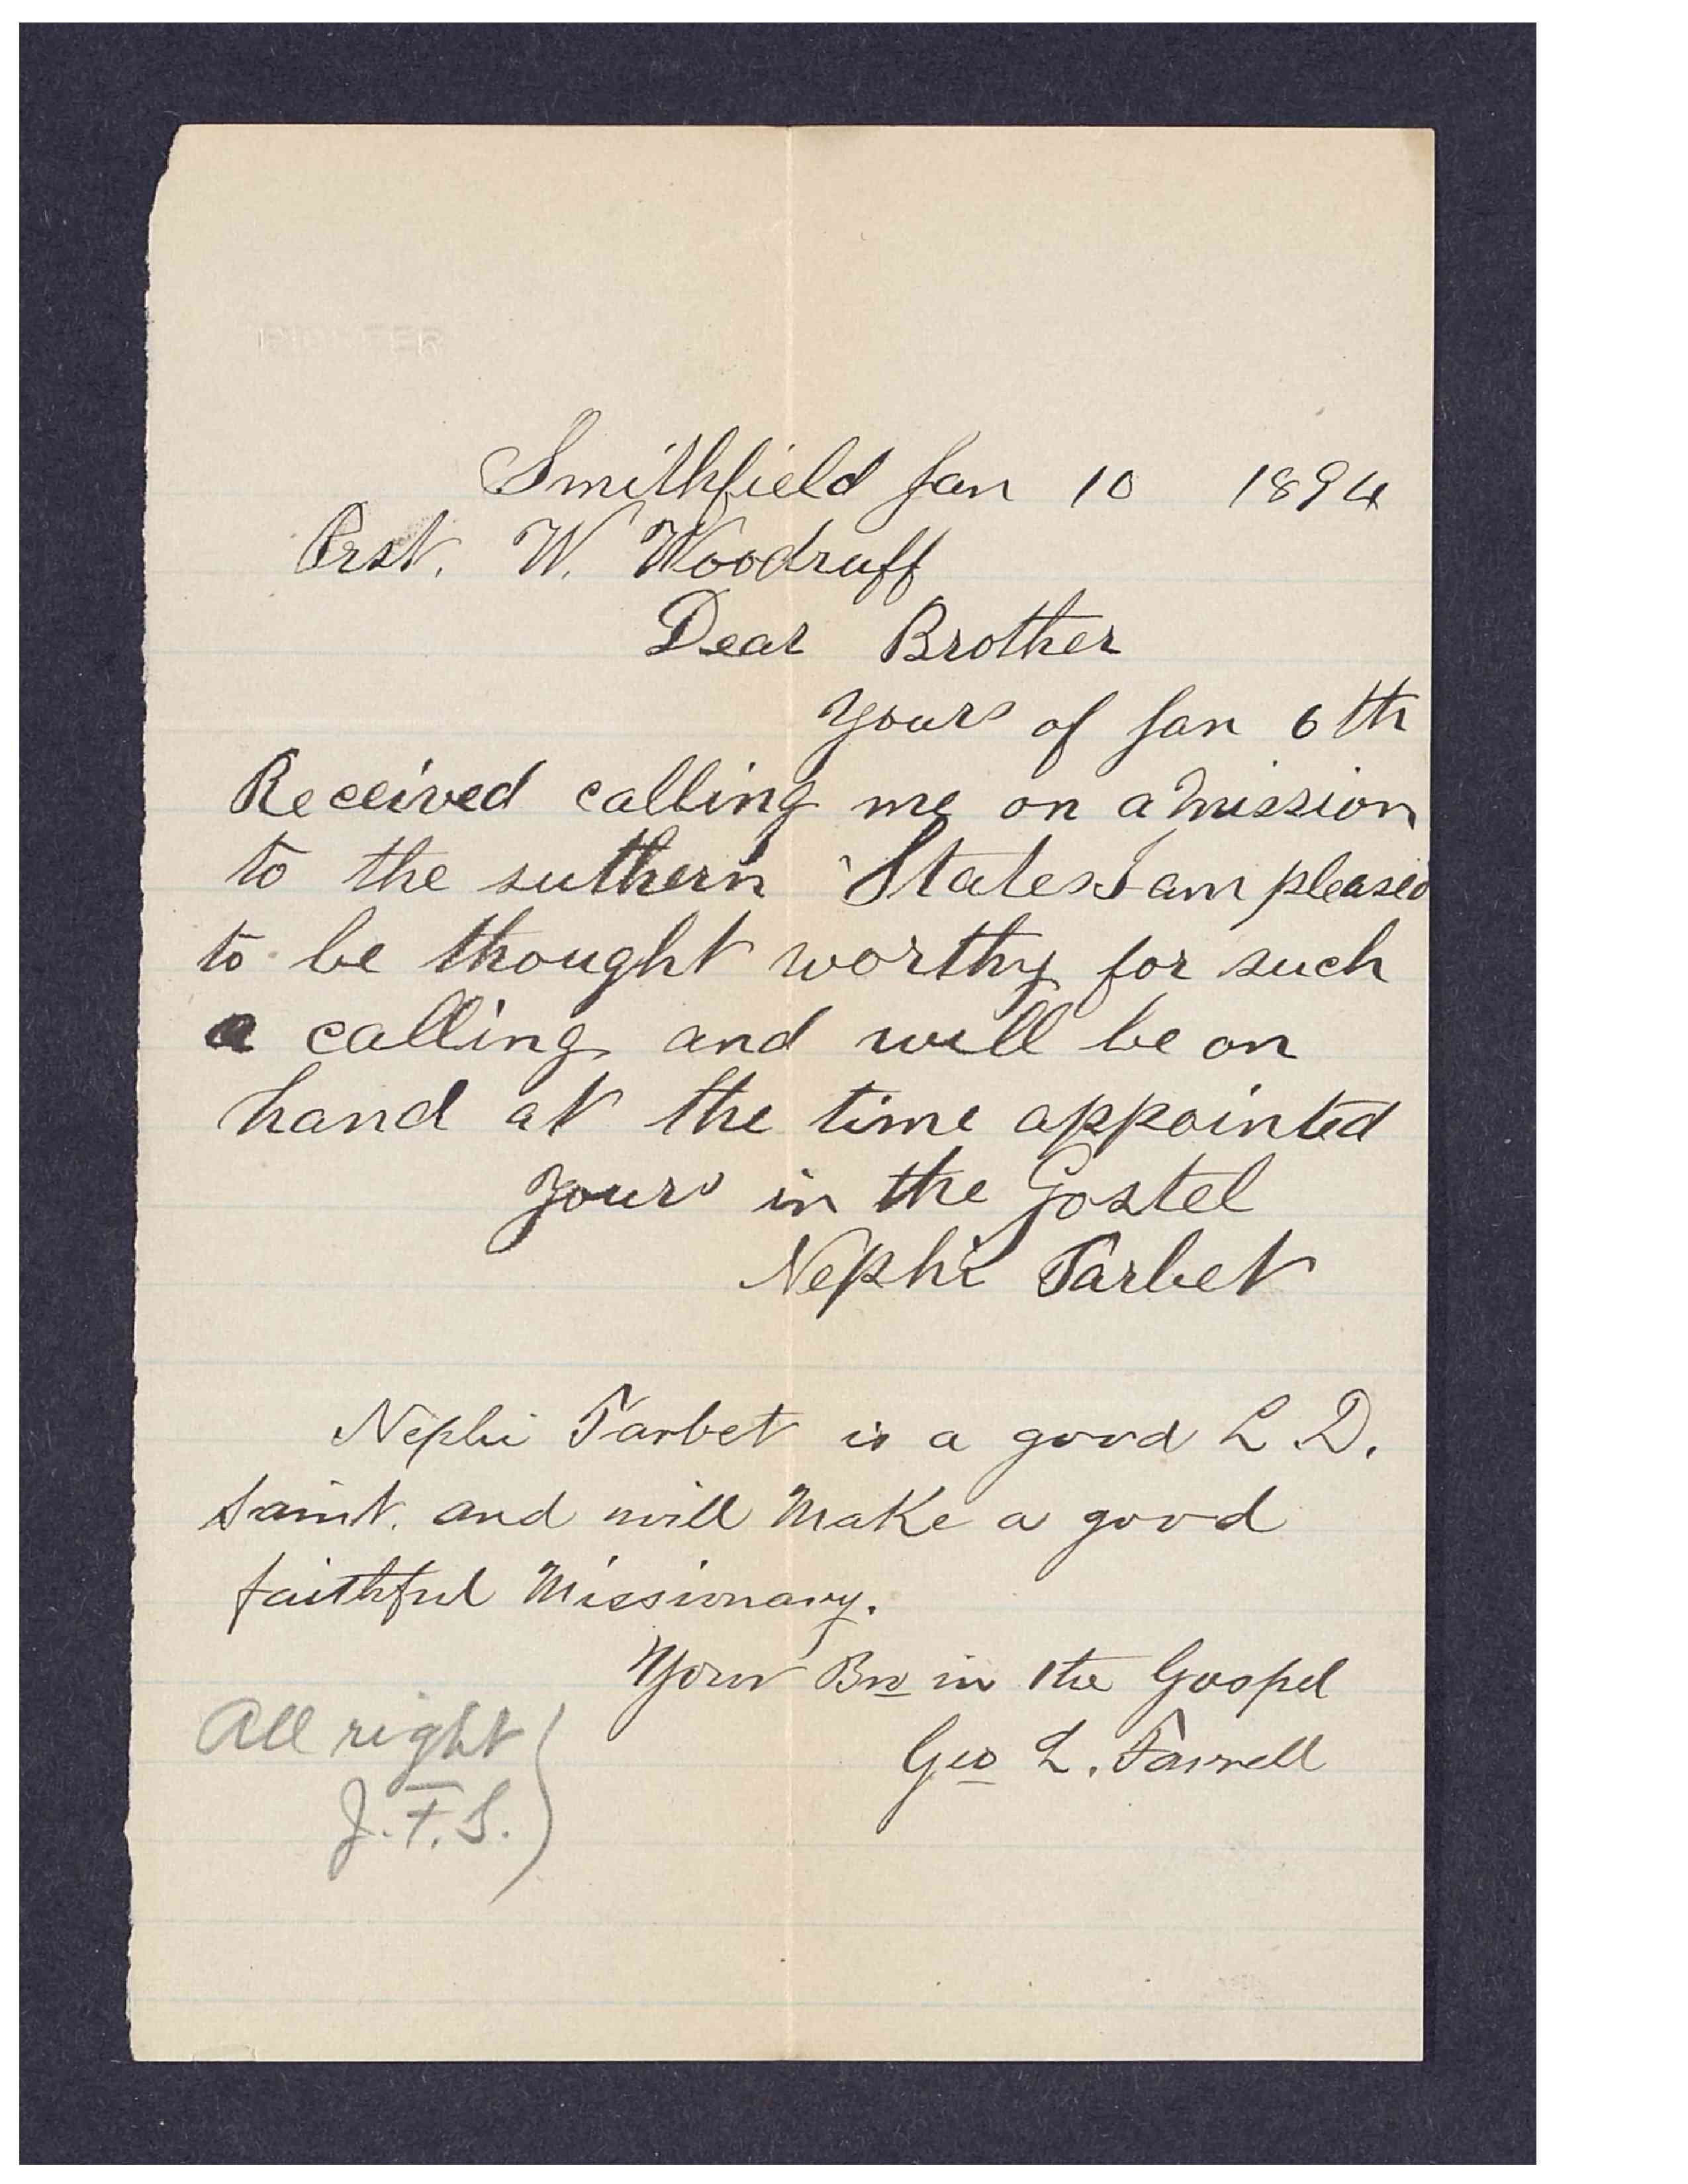 PIONEER
Smithfield Jan 10 1894
Prst. W. Woodruff
Dear Brother
yours of Jan 6th
Received calling me on a mission
to the suthern States I am pleased
to be thought worthy for such
a calling and will be on
hand at the time appointed
yours in the Gostel
Nephi Tarbet
Nephi Tarbet is a good L. D.
Saint. and will Make a good
faithful Missionary.
Your Bro in the Gospel
Geo L. Farrell
All right
J. F. S.